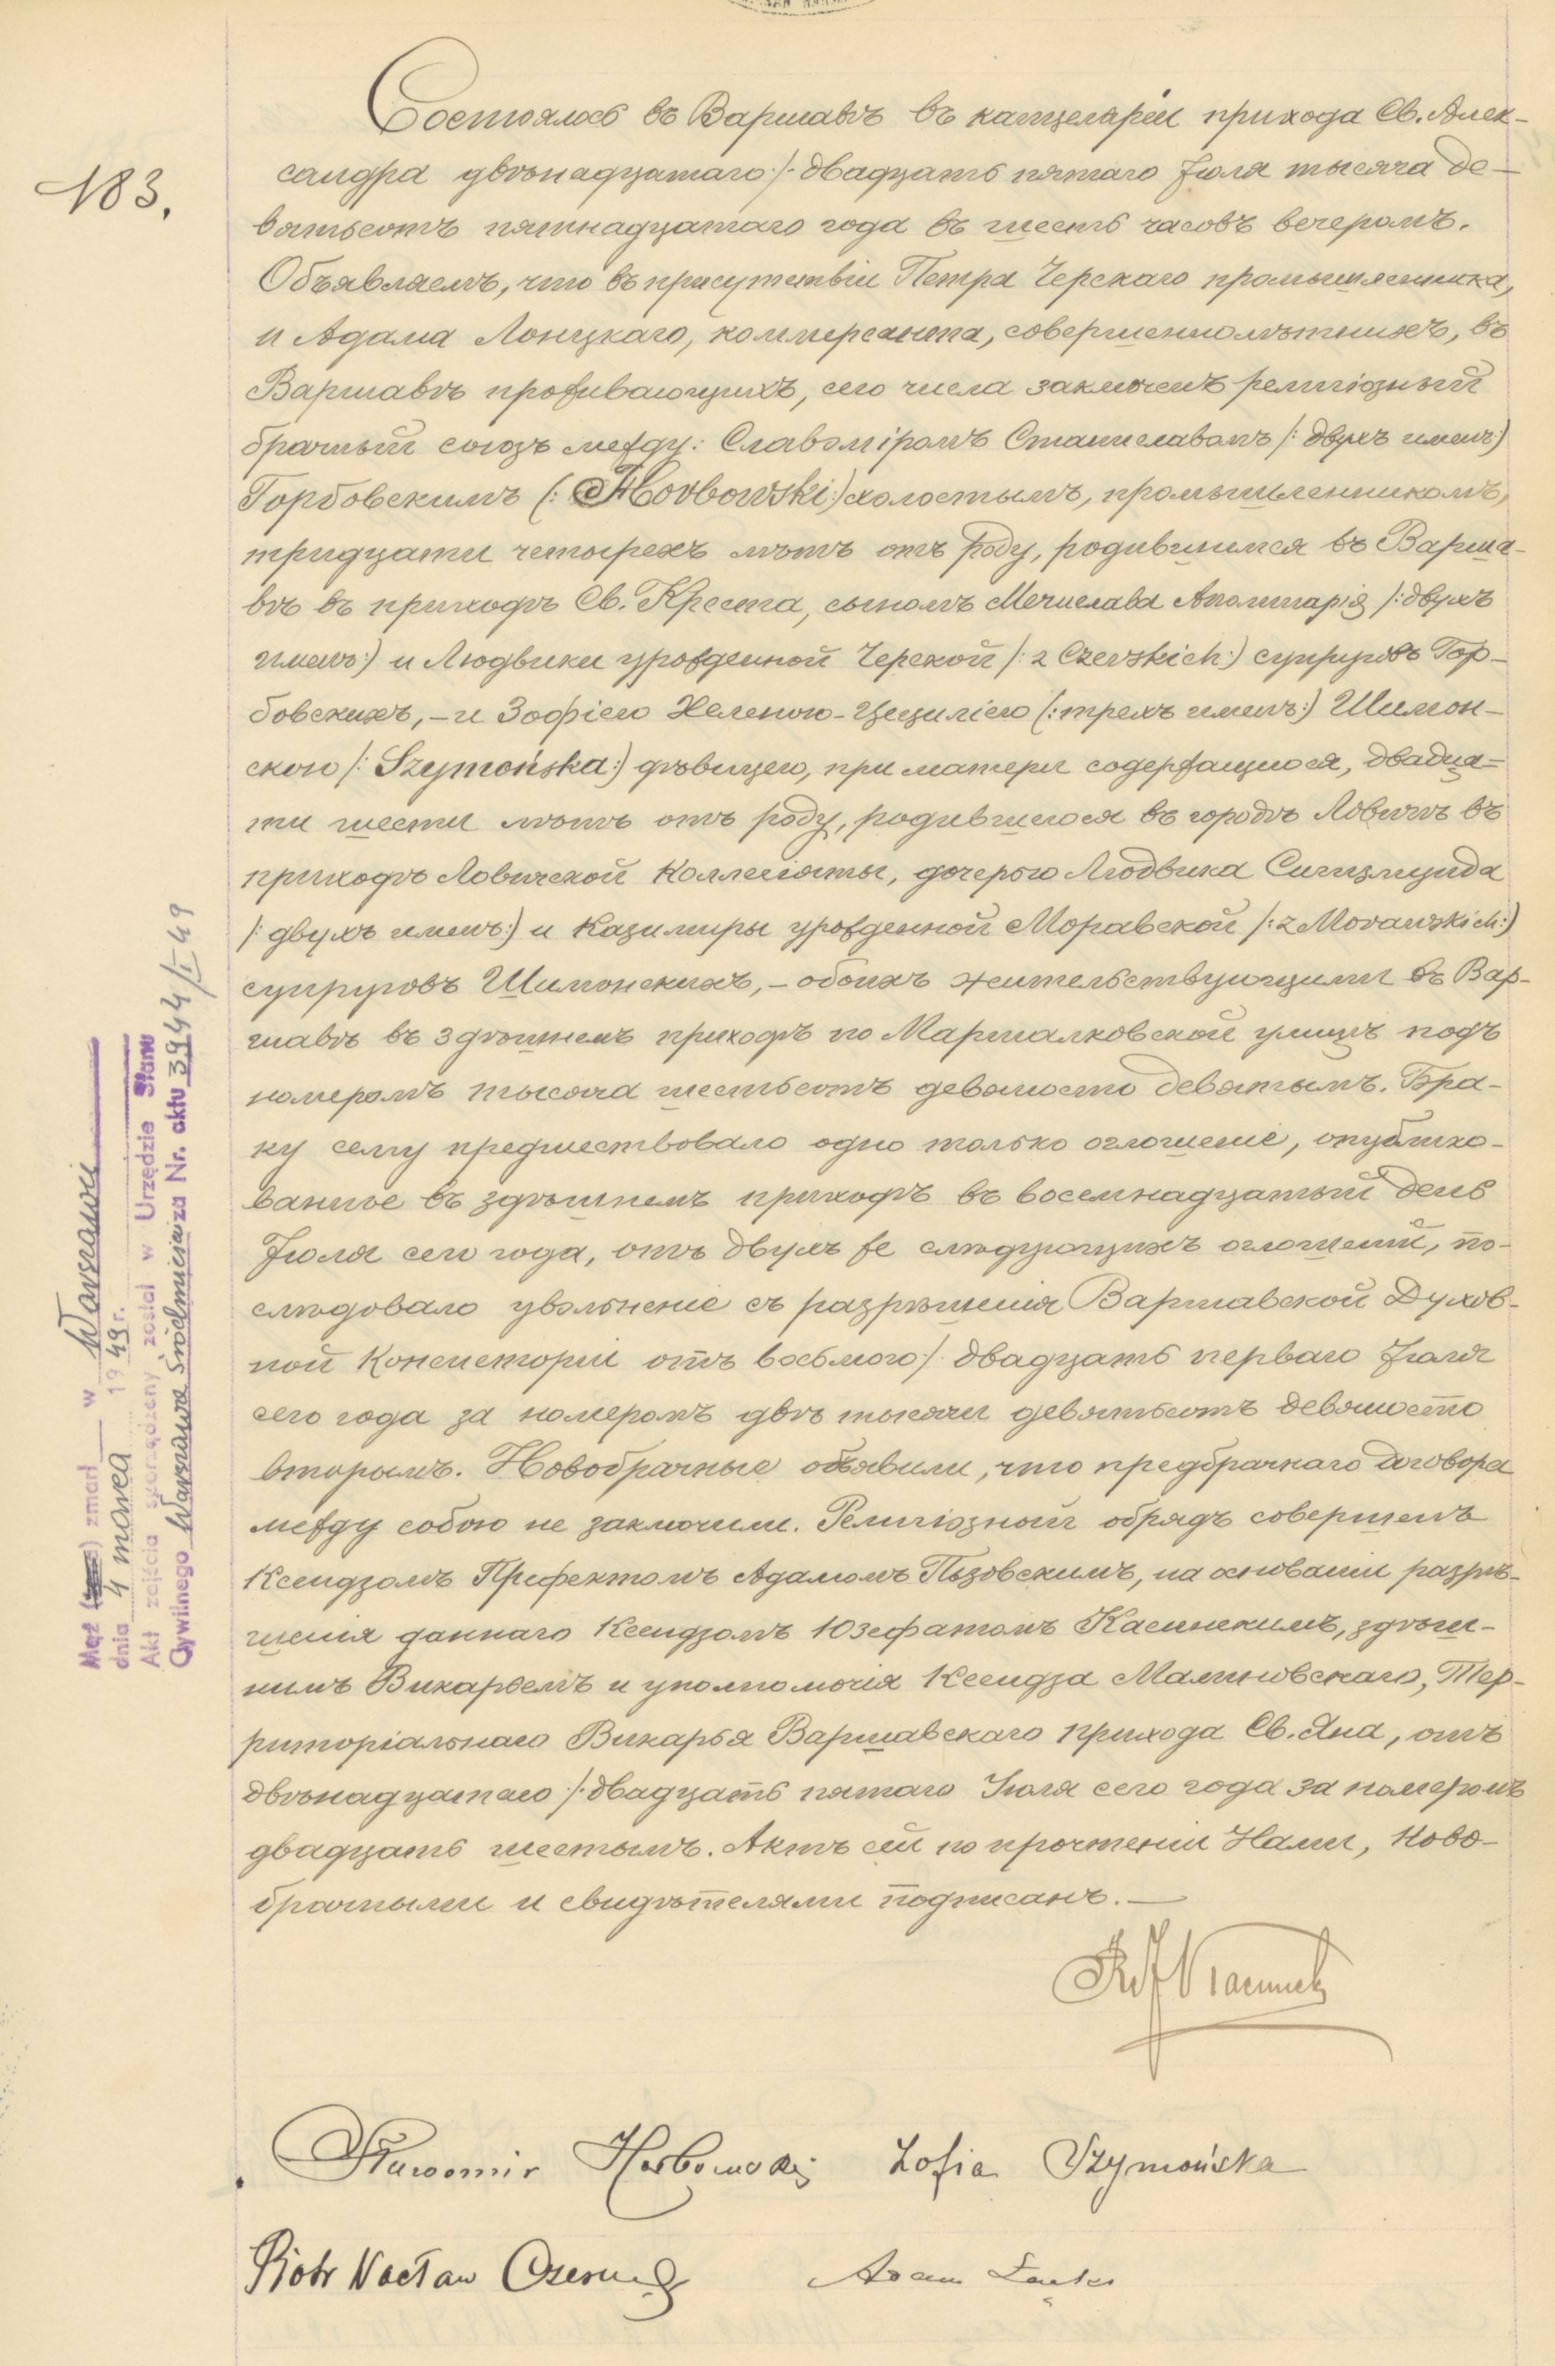 183.
Состоялось въ Варшавѣ въ канцеляріи прихода Св. Алек-
сандра двѣнадцатаго /: двадцать пятаго Іюля тысяча де-
вятьсотъ пятнадцатаго года въ шесть часовъ вечеромъ.
Объявляемъ, что въ присутствіи Петра Черскаго промышленника,
и Адама Лонцкаго, коммерсанта, совершеннолѣтнихъ, въ
Варшавѣ проживающихъ, сего числа заключенъ религіозный
брачный союзъ между: Славоміромъ Станиславомъ /: двухъ именъ:)
Горбовскимъ (: Horbowski:) холостымъ, промышленникомъ,
тридцати четырехъ лѣтъ отъ роду, родившимся въ Варша-
вѣ въ приходѣ Св. Креста, сыномъ Мечислава Аполинарія /: двухъ
именъ:) и Людвики урожденной Черской /: z Czerskich:) супруговъ Гор-
бовскихъ, – и Зофіею Хеленою-Цециліею (: трехъ именъ:) Шимон-
скою /: Szymońska:) дѣвицею, при матери содержащеюся, двадца-
ти шести лѣтъ отъ роду, родившеюся въ городѣ Ловичѣ въ
приходѣ Ловичской Коллегіяты, дочерью Людвика Сигизмунда
/: двухъ именъ:) и Казимиры урожденной Моравской /: z Morawskich:)
супруговъ Шимонскихъ, – обоихъ жительствующими въ Вар-
шавѣ въ здѣшнемъ приходѣ по Маршалковской улицѣ подъ
номеромъ тысяча шестьсотъ девяносто девятымъ. Бра-
ку сему предшествовало одно только оглошеніе, опублико-
ванное въ здѣшнемъ приходѣ въ восемнадцатый день
Іюля сего года, отъ двухъ же слѣдующихъ оглошеній, по-
слѣдовало увольненіе съ разрѣшенія Варшавской Духов-
ной Консисторіи отъ восьмого /: двадцать перваго Іюля
сего года за номеромъ двѣ тысячи девятьсотъ девяносто
вторымъ. Новобрачные объявили, что предбрачнаго договора
между собою не заключили. Религіозный обрядъ совершенъ
Ксендзомъ Префектомъ Адамомъ Пызовскимъ, на основаніи разрѣ-
шенія даннаго Ксендзомъ Юзефатомъ Касинскимъ, здѣш-
нимъ Викарьемъ и уполномочія Ксендза Малиновскаго, Тер-
риторіальнаго Викарья Варшавскаго прихода Св. Яна, отъ
двѣнадцатаго /: двадцать пятаго Іюля сего года за номеромъ
двадцать шестымъ. Актъ сей по прочтеніи Нами, Ново-
брачными и свидѣтелями подписанъ. –
Sławomir Horbowski Zofia Szymońska
Piotr Wacław Czerski Adam Łącki
Mąż zmarł w Warszawie
dnia 4 marca 1949 r.
Akt zejścia sporządzony został w Urzędzie Stanu
Cywilnego Warszawa Śródmieście za Nr. aktu 3944/I 49